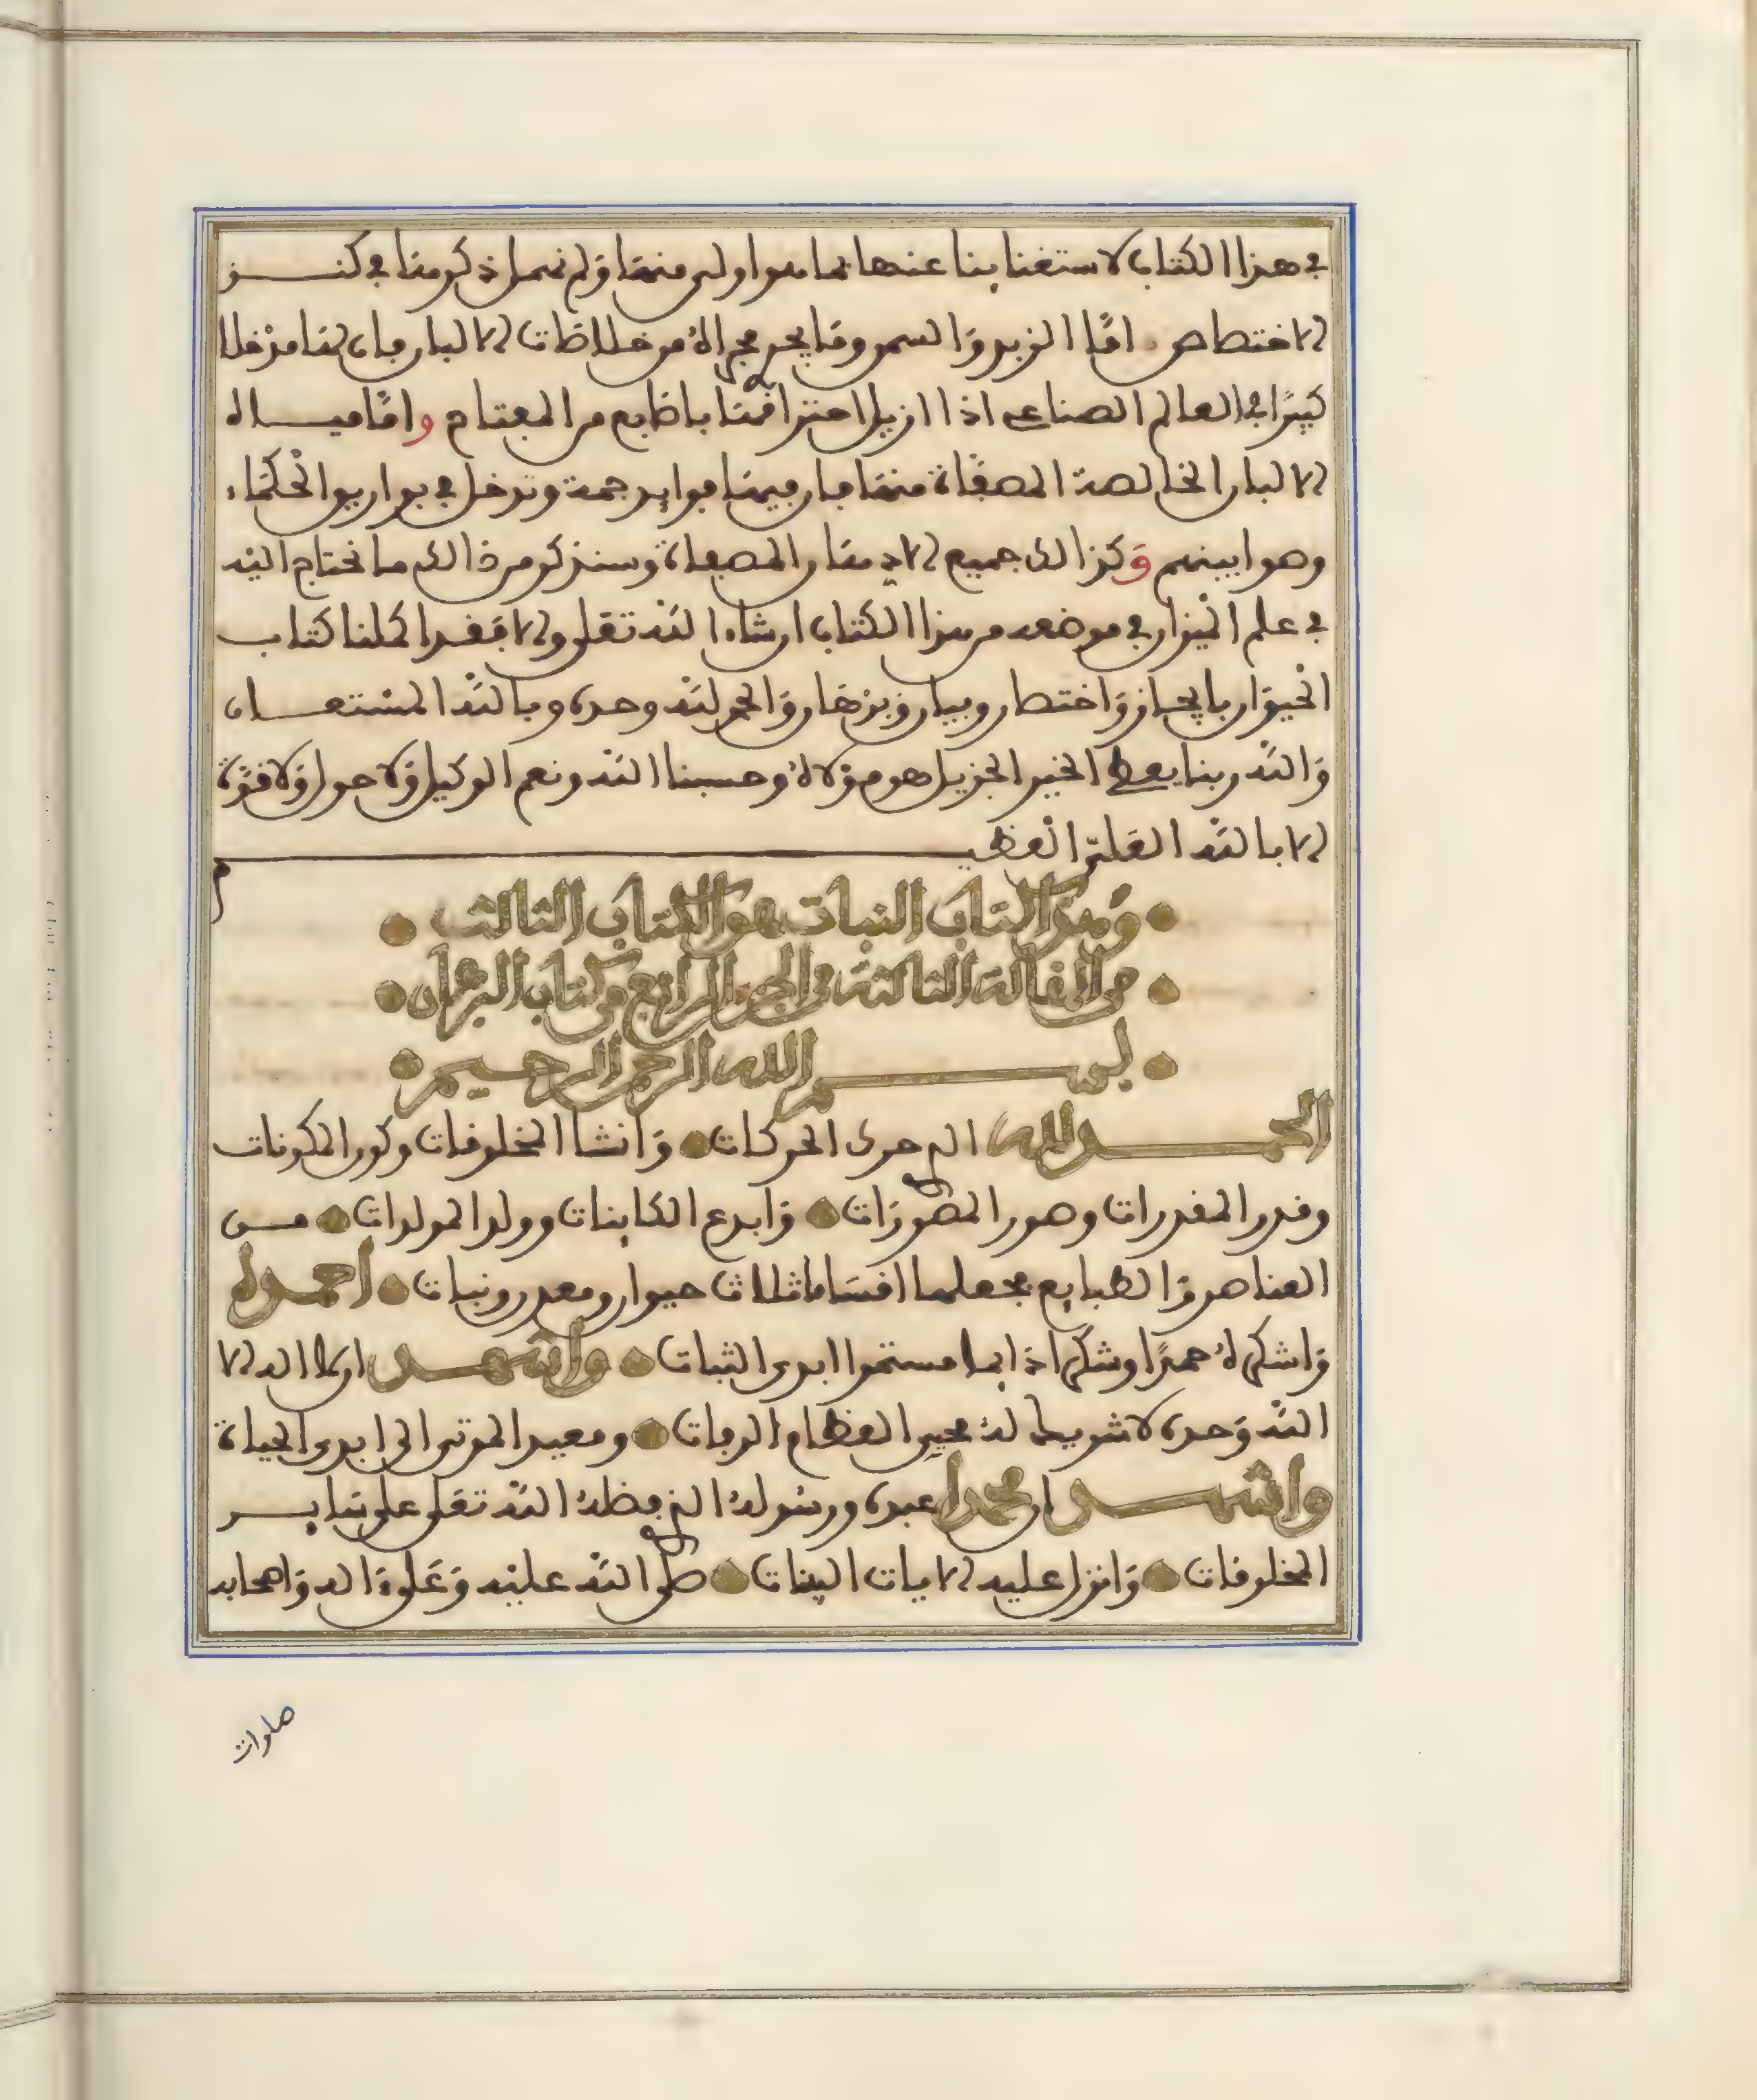 في هذا الكتاب لاستغنائنا عنها بما هو اولى منها ولم نهمل ذكرها في كنز
الاختصاص اما الزبد والسمن وما يجري مجراه من خلاصات الالبان فان لها مدخلا
كبيرا في العالم الصناعي اذا ازيل احتراقها باصابع من المفتاح واما مياه
الالبان الخالصة المصفاة منها فان فيها فوايد جمة وتدخل في بواريو الحكماء
وهوا بينهم وكذالك جميع الادهان المصفاة وسنذكر من ذالك ما نحتاج اليه
في علم الميزان في موضعه من هذا الكتاب ان شاء الله تعلى والا فقد اكملنا كتاب
الحيوان بايجاز واختصار وبيان وبرهان والحمد لله وحده وبالله المستعان
والله ربنا يعطي الخير الجزيل هو مولاه وحسبنا الله ونعم الوكيل ولا حول ولا قوة
الا بالله العلي العظيم
وهذا كتاب النبات هو الكتاب الثالث
من المقالة الثالثة من الجزء الرابع من كتاب البرهان
بسم الله الرحمن الرحيم
الحمد لله الذي حرك الحركات وانشا المخلوقات وكون المكونات
وقدر المقدرات وصور المصورات وابدع الكاينات وولد المولدات من
العناصر والطبايع فجعلها اقساما ثلاث حيوان ومعدن ونبات احمده
واشكره حمدا وشكرا دايما مستمرا ابدي الثبات واشهد ان لا اله الا
الله وحده لا شريك له محيي العظام الرفات ومعيد الموتى الى ابدي الحياة
واشهد ان محمدا عبده ورسوله الذي فضله الله تعلى على ساير
المخلوقات وانزل عليه الايات البينات صلى الله عليه وعلى اله واصحابه
صلوات